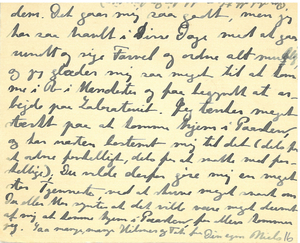 dem. Det gaar mig saa godt, men jeg
har saa travlt i Disse Dage med at gaa
rundt og sige Farvel og ordne alt muligt
og jeg glæder mig saa meget til at kom
me i og paa begyndt at ar-
bejde paa Laboratoriet. Jeg tænker meget
stærkt paa at komme hjem i Paasken,
og har næsten bestemt mig til det (dels for
at ordne forskelligt, dels for at snakke med for-
skellige). Du vilde derfor give mig en meget
stor Tjeneste ved at skrive meget snart om
Du eller Mor synes at det vilde være meget dumt
af mig at komme hjem i Paasken, for ellers kommer
jeg. Saa mange, mange Hilsner og Tak fra Din egen Niels